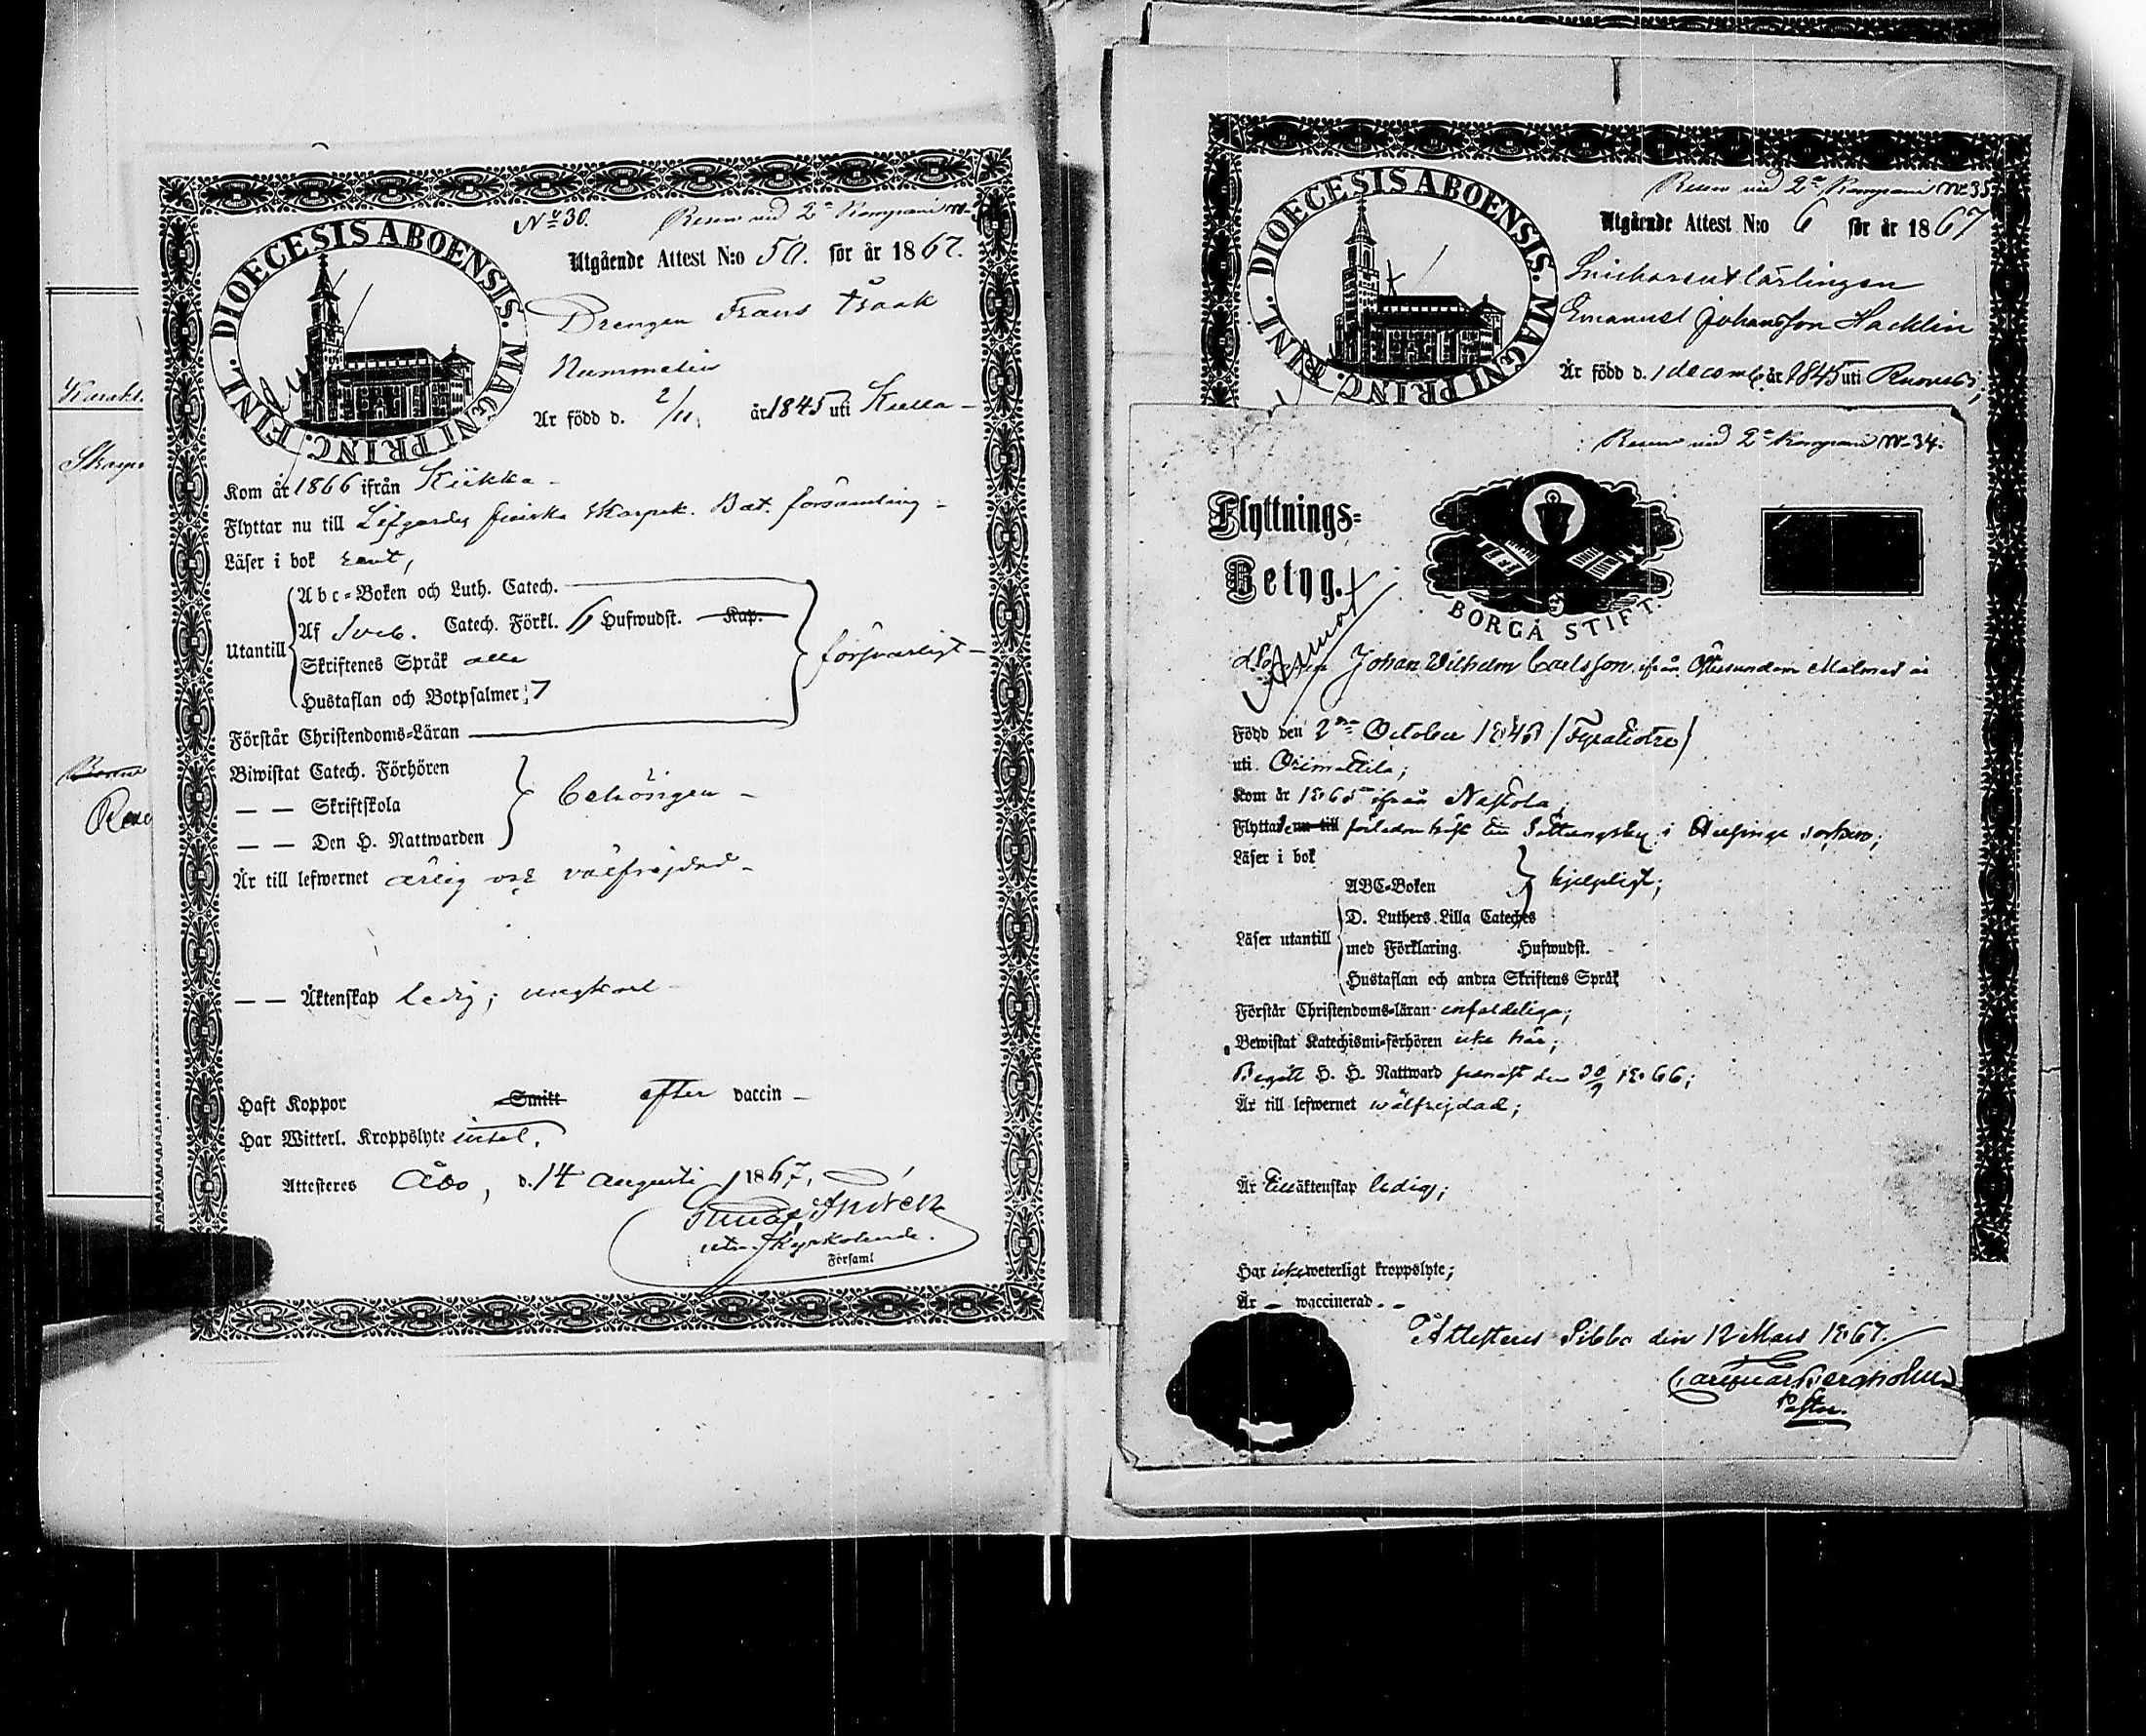 Karakt.
Skarpr
Rese
DIOECESIS ABOENSIS. MAGNI PRINC. FINL.
No 30.
Reserv vid 2a Kompani No
Utgående Attest N:o 50. för år 1867.
Drengen Frans Isaak
Nummelin
Är född d. 2/11. år 1845 uti Kulla
Kom år 1866 ifrån Kiikka
Flyttar nu till Lifgardes finska Skarpsk. Bat. församling
Läser i bok rent,
Abc-Boken och Luth. Catech.
Utantill Af Sveb. Catech. Förkl. 6 Hufwudst. Kap.
Skriftenes Språk alla
försvarligt
Hustaflan och Botpsalmer; 7
Förstår Christendoms-Läran
Biwistat Catech. Förhören
— — Skriftskola
Behörigen
— — Den H. Nattwarden
Är till lefwernet ärlig och välfrejdad
— — Äktenskap ledig; ungkarl
Haft Koppor Smitt efter vaccin
Har Witterl. Kroppslyte intet.
Attesteras Åbo, d. 14 Augusti 1867.
Kyrkoherde.
Församl
DIOECESIS ABOENSIS. MAGNI PRINC. FINL.
Reserv vid 2a Kompani No 35
Utgående Attest N:o 6 för år 1867
Snickareut lärlingen
Emanuel Johansson Hacklin
Är född d. 1 decemb. år 1845 uti Ruovesi;
Reserv vid 2a Kompani No 34.
Flyttnings-
Betyg.
BORGÅ STIFT.
Johan Wilhelm Carlsson, ifrån Östersundom Malmed
Född den 2dra October 1843 (Fyratiotre)
uti Orimattila;
Kom år 1865 ifrån Nastola;
Flyttade nu till förleden höst till Sottungsby i Helsinge socken;
Läser i bok
ABC-Boken hjelpligt;
D. Luthers Lilla Cateches
Läser utantill med Förklaring Hufwudst.
Hustaflan och andra Skriftens Språk
Förstår Christendoms-läran enfaldeliga;
Bewistat Katechismi-förhören icke här;
Begått H. H. Nattward senast den 30/9 1866;
Är till lefwernet wälfrejdad;
Är till äktenskap ledig;
Har icke weterligt kroppslyte;
Är – waccinerad. –
Attesteras Sibbo den 12 Mars 1867.
Bergholm
Pastor.